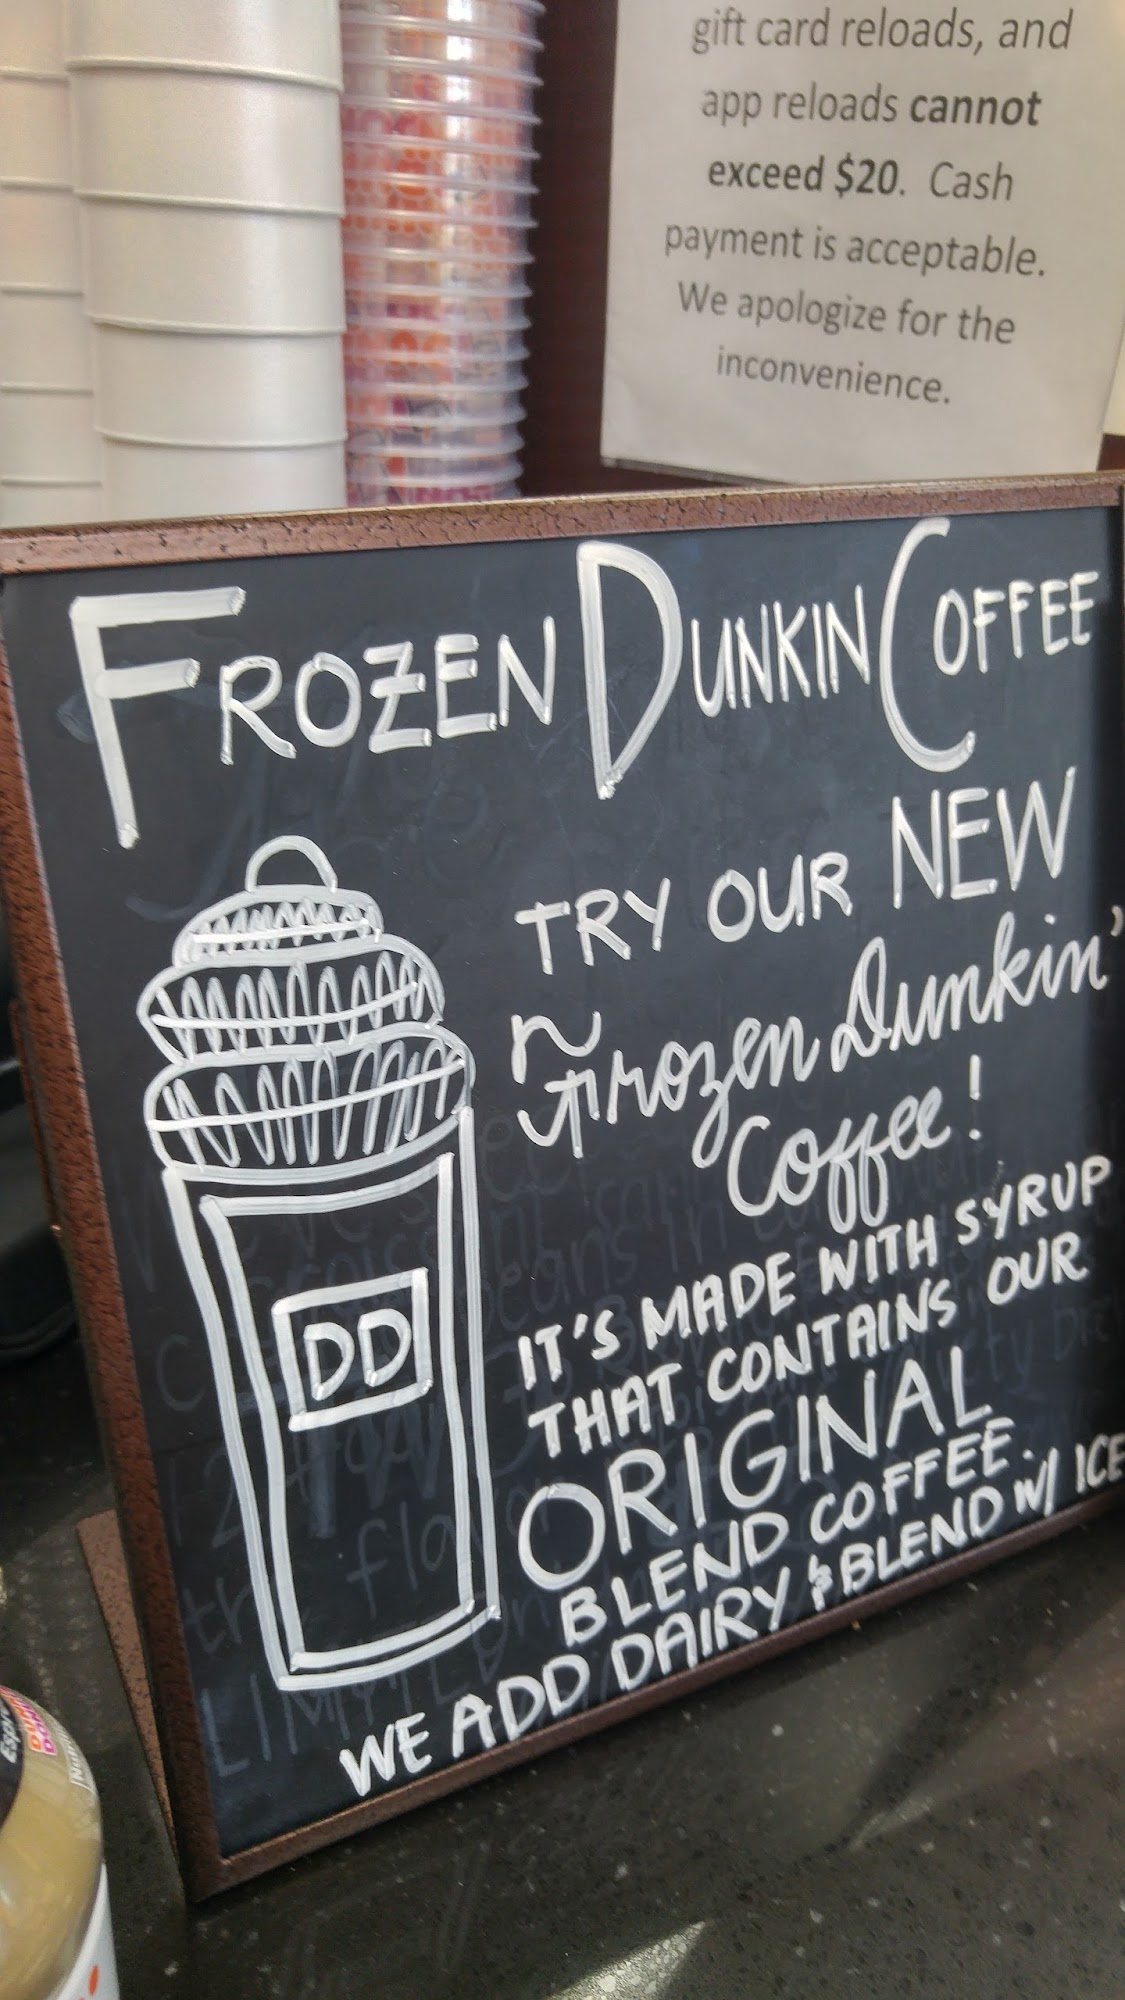 gift card reloads, and
app reloads cannot
exceed $20. Cash
payment is acceptable.
We apologize for the
inconvenience.
FROZEN DUNKIN COFFEE
TRY OUR NEW
Frozen Dunkin'
Coffee!
IT'S MADE WITH SYRUP
THAT CONTAINS OUR
ORIGINAL
BLEND COFFEE.
WE ADD DAIRY & BLEND W/ ICE
DD